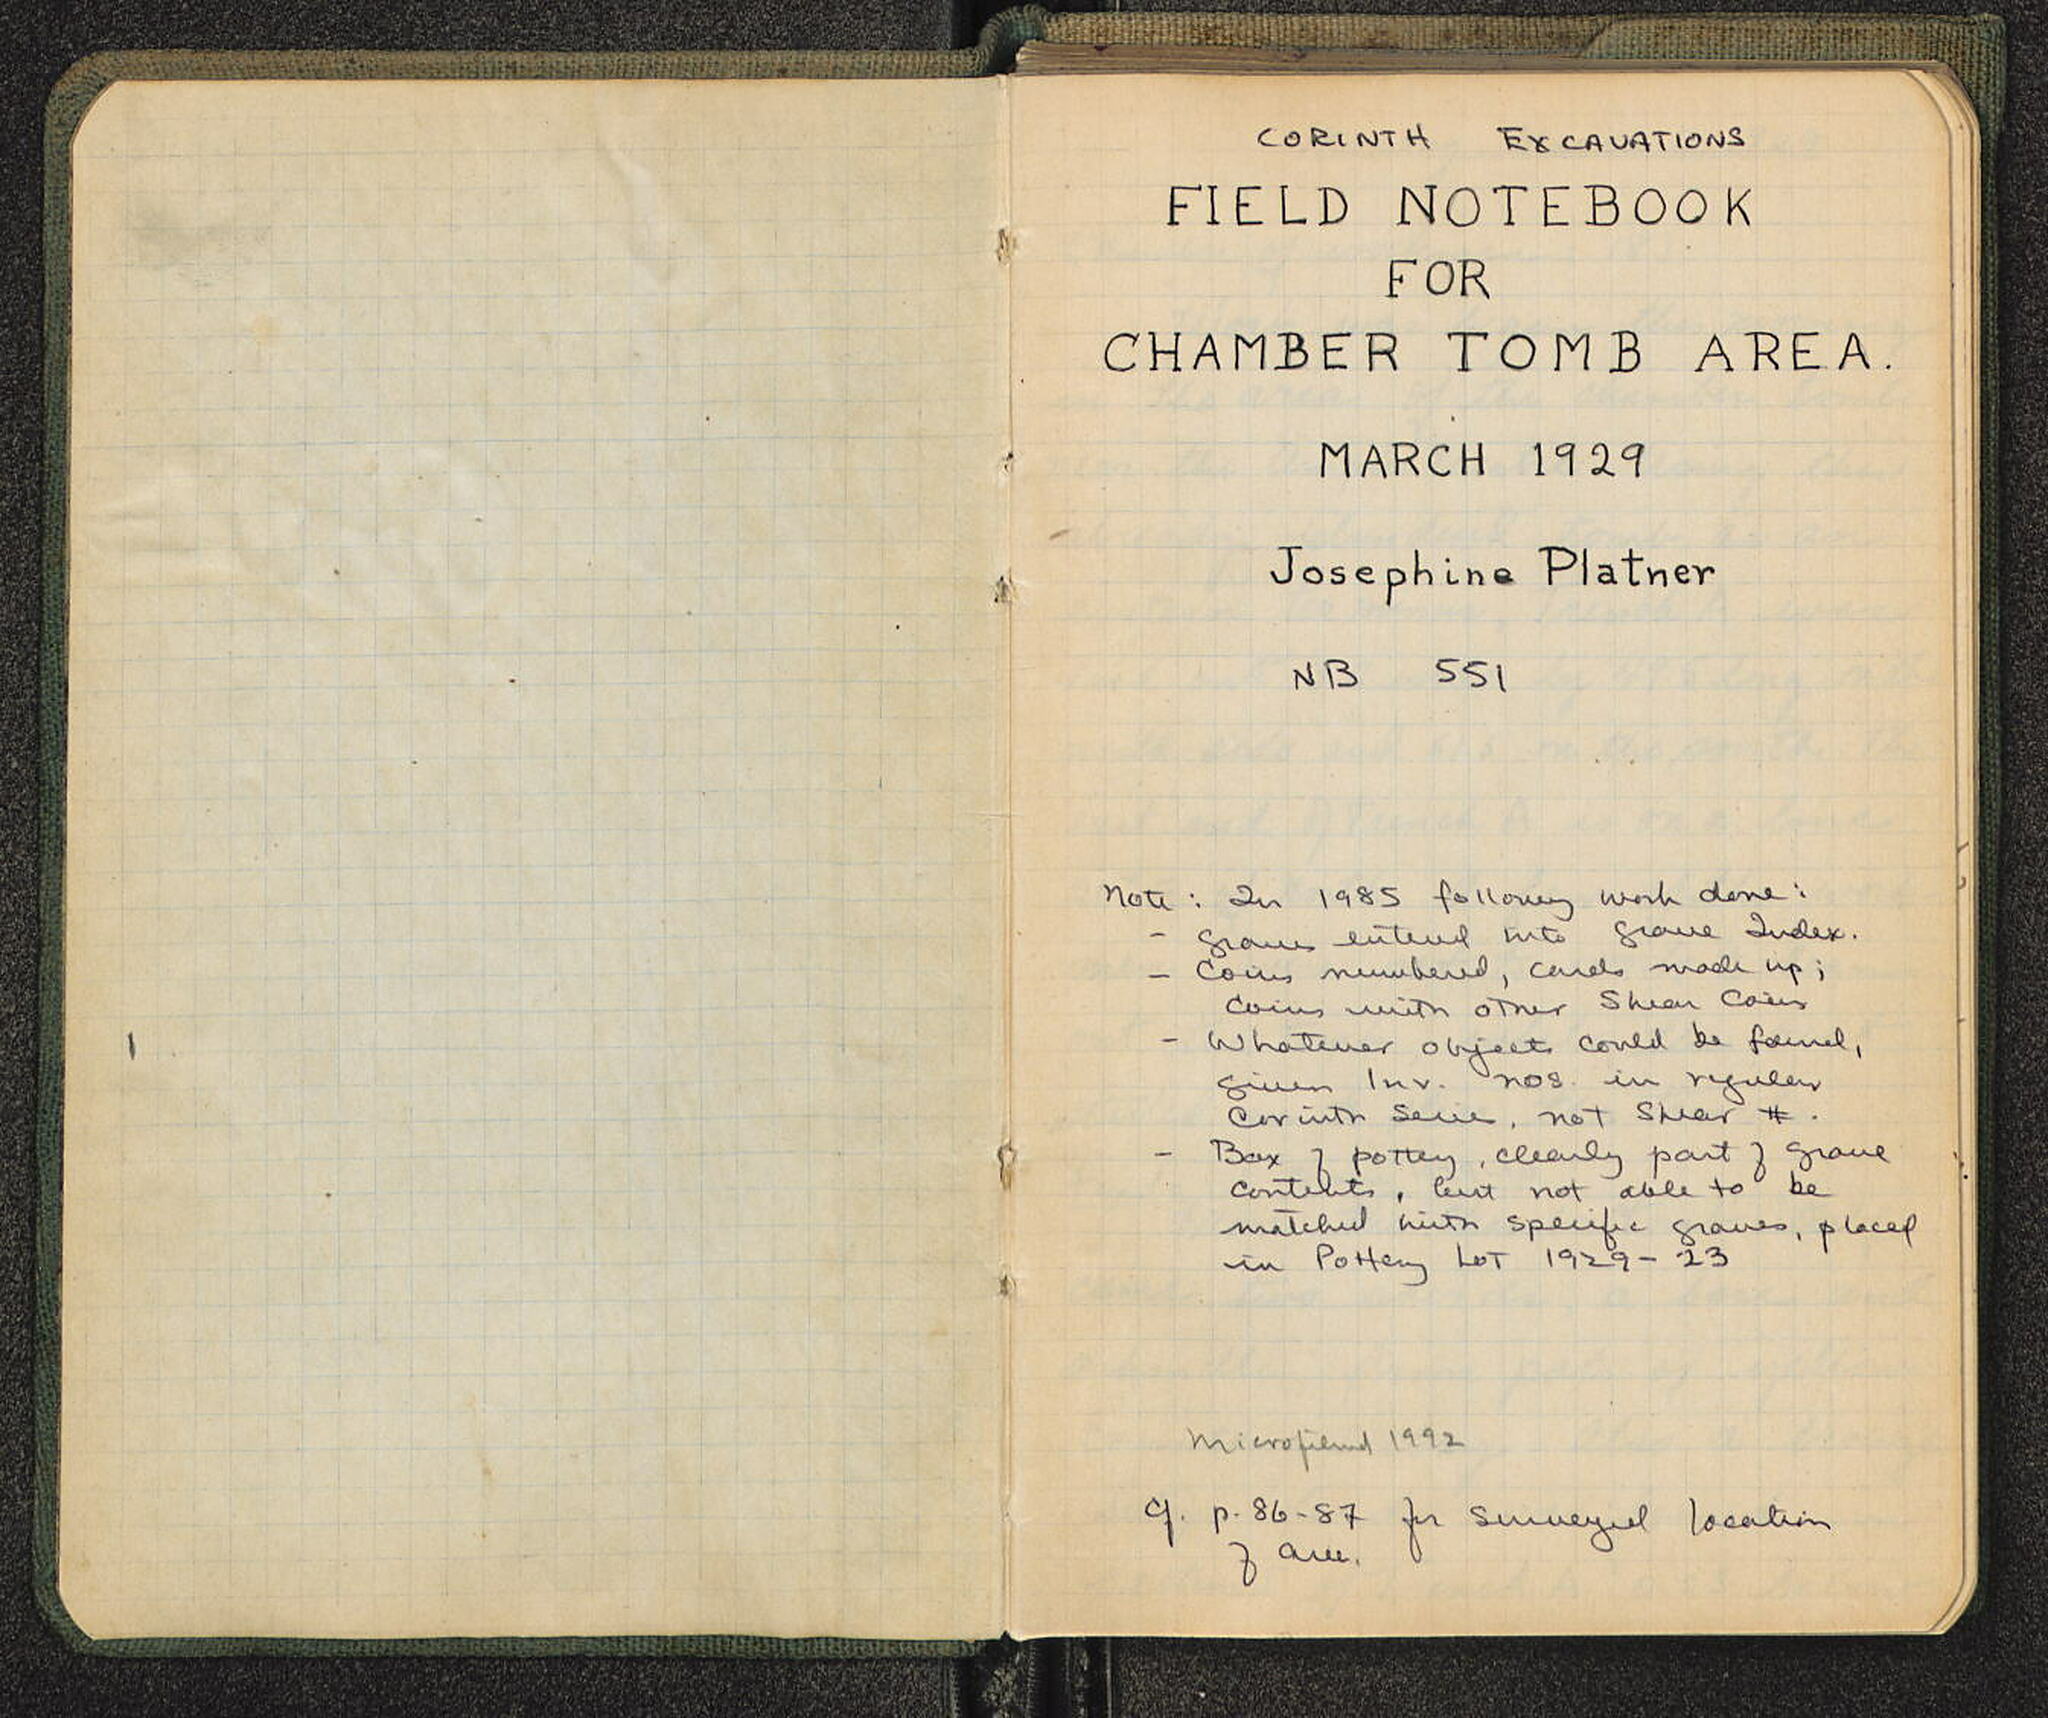 CORINTH EXCAVATIONS
FIELD NOTEBOOK
FOR
CHAMBER TOMB AREA.
MARCH 1929
Josephine Platner
NB 551
Note: In 1985 following work done:
- graves entered into grave Index.
- Coins numbered, cards made up;
coins with other Shear Coins
- Whatever objects could be found,
given Inv. nos. in regular
Corinth series, not Shear #.
- Box of pottery, clearly part of grave
contents, but not able to be
matched with specific graves, placed
in Pottery Lot 1929-23
Microfilmed 1992
cf. p. 86-87 for surveyed location
of area.